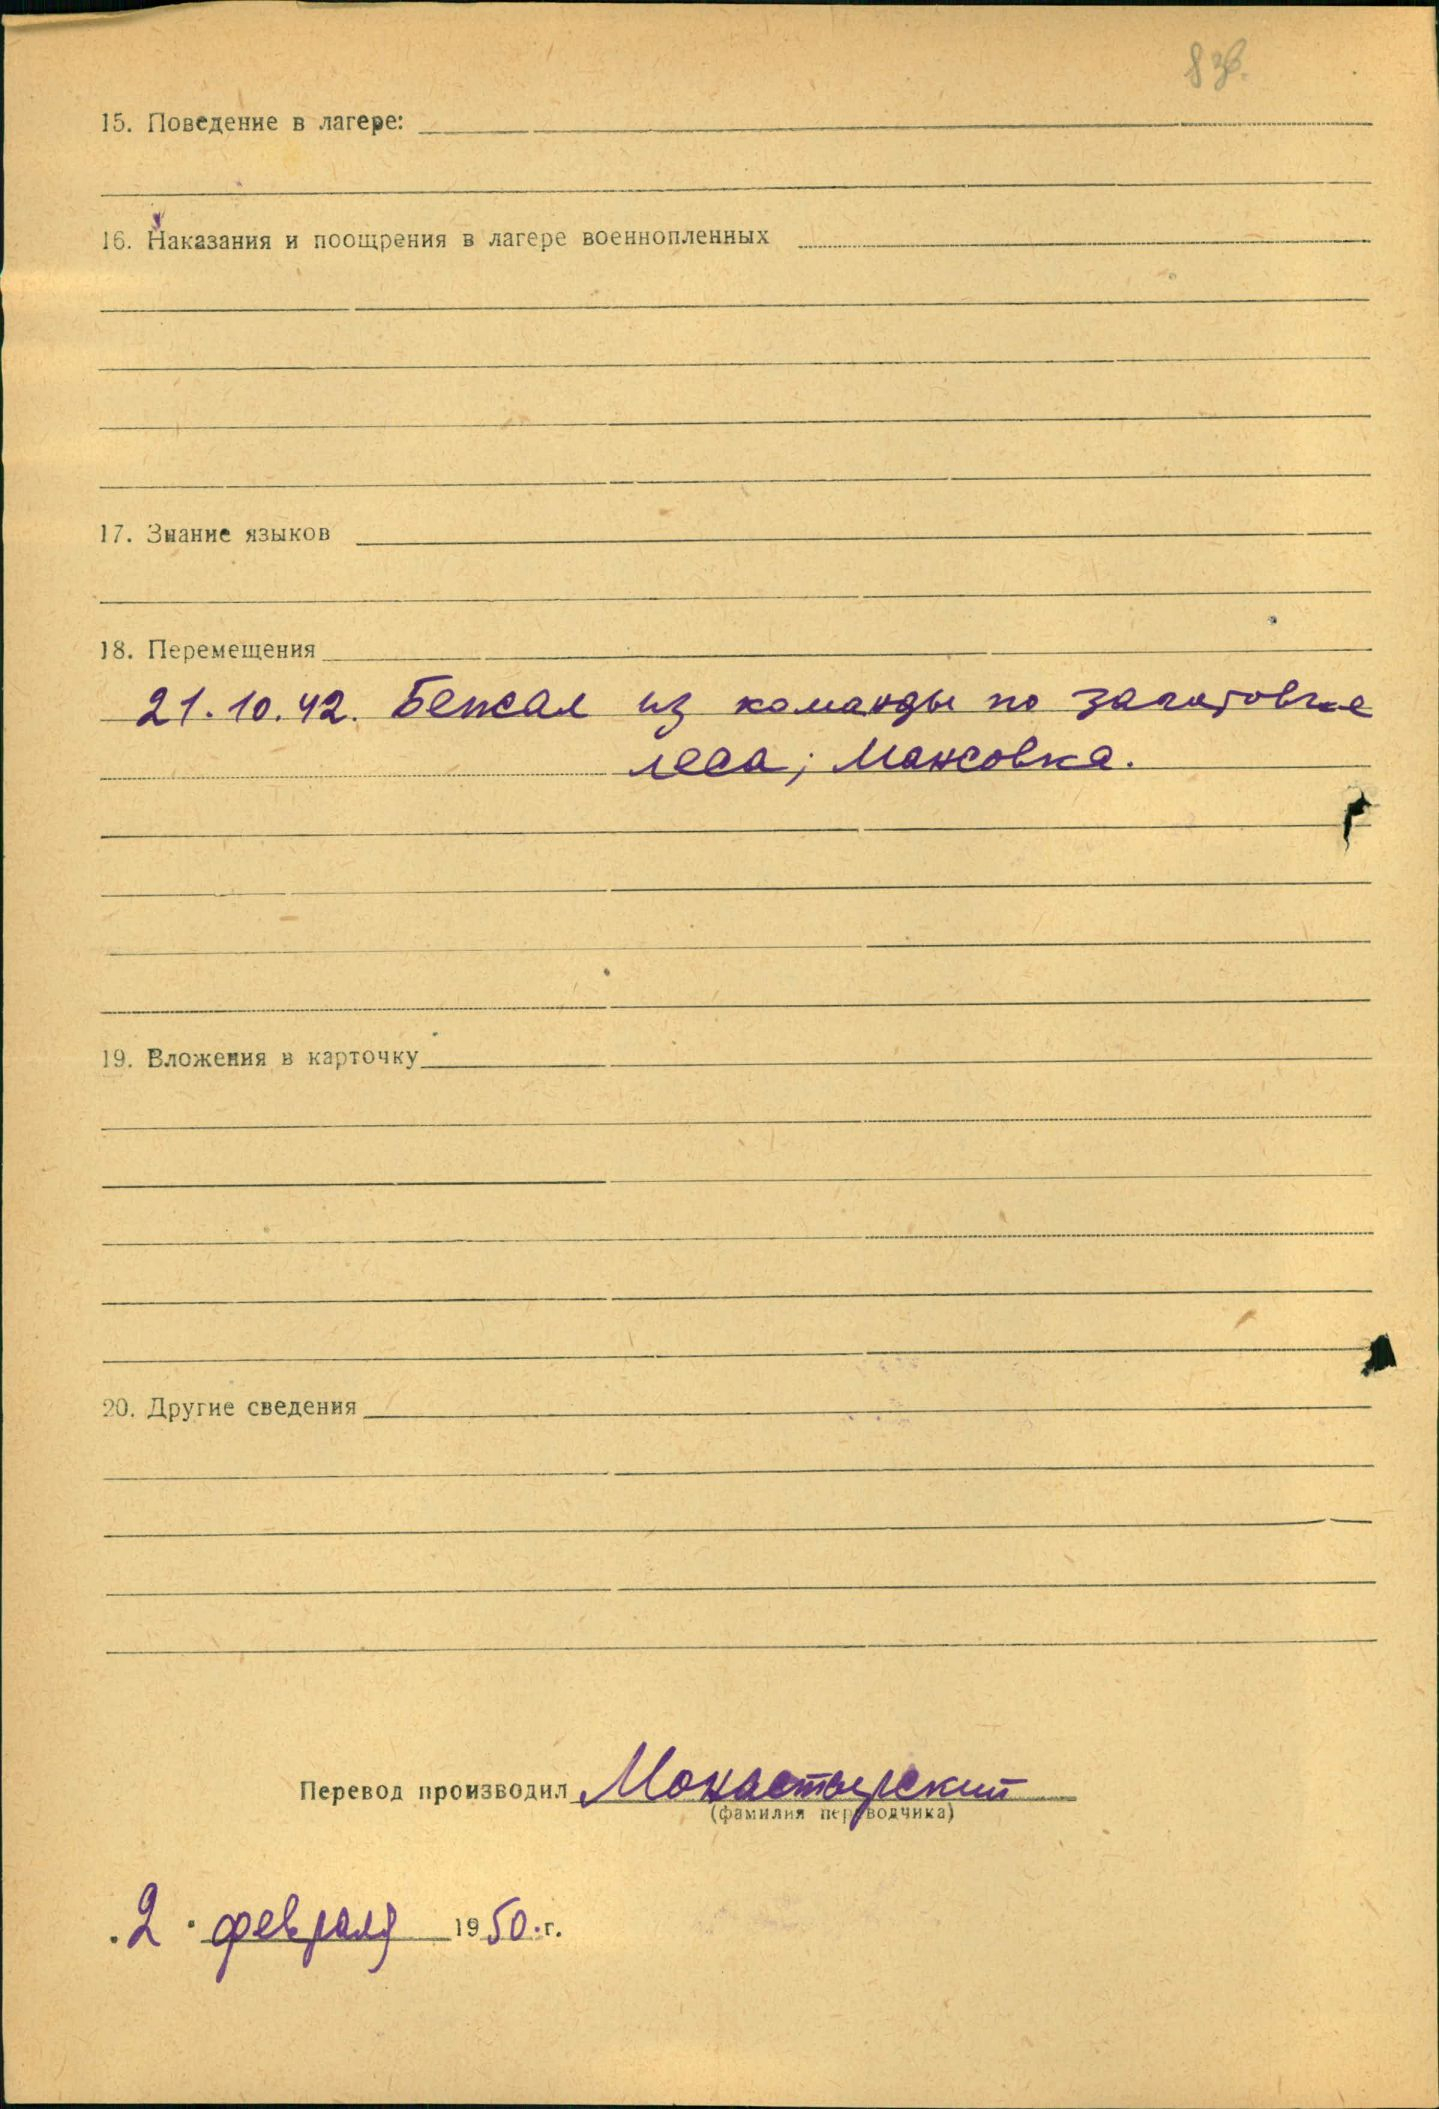 15. Поведение в лагере:
16. Наказания и поощрения в лагере военнопленных
17. Знание языков
18. Перемещения
21.10.42. Бежал из команды по заготовке
леса;
19. Вложения в карточку
20. Другие сведения
Перевод производил Монастырский
(фамилия переводчика)
"2" февраля 1950 г.